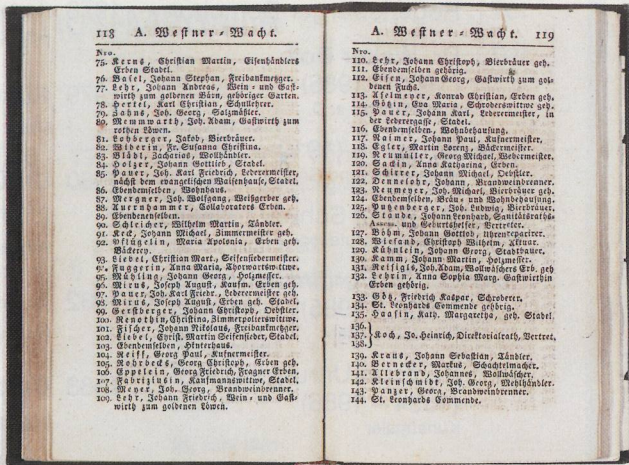 118 A. Westner-Wacht.
Nro.
75. Kerns, Christian Martin, Eisenhändlers
Erben Stadel.
76. Basel, Johann Stephan, Freibankmetzger.
77. Lehr, Johann Andreas, Wein- und Gast-
wirth zum goldenen Bären, gehöriger Garten.
78. Hertel, Karl Christian, Schullehrer.
79. Jahns, Joh. Georg, Salzmäßler.
80. Memmwarth, Joh. Adam, Gastwirth zum
rothen Löwen.
81. Lohberger, Jakob, Bierbräuer.
82. Wiberin, Fr. Susanna Christina.
83. Blädl, Zacharias, Wollhändler.
84. Holzer, Johann Gottlieb, Stadel.
85. Pauer, Joh. Karl Friedrich, Lederermeister,
nächst dem evangelischen Waisenhause, Stadel.
86. Ebendemselben, Wohnhaus.
87. Mergner, Joh. Wolfgang, Weißgerber geh.
88. Auernhammer, Collaborators Erben.
89. Ebendenenselben.
90. Schleicher, Wilhelm Martin, Tändler.
91. Keck, Johann Michael, Zimmermeister geh.
92. Pflügelin, Maria Apolonia, Erben geh.
Bäckerey.
93. Liebel, Christian Mart., Seifensiedermeister.
94. Fuggerin, Anna Maria, Thorwartswittwe.
95. Mühling, Johann Georg, Holzmesser.
96. Mirus, Joseph August, Kaufm. Erben geh.
97. Pauer, Joh. Karl Friedr., Lederermeister geh.
98. Mirus, Joseph August, Erben geh. Stadel.
99. Gerstberger, Johann Christoph, Oebstler.
100. Renothin, Christina, Zimmerpolierswittwe.
101. Fischer, Johann Nikolaus, Freibankmetzger.
102. Liebel, Christ. Martin Seifensieder, Stadel.
103. Ebendemselben, Hinterhaus.
104. Reiff, Georg Paul, Kufnermeister.
105. Rohrbecks, Georg Christoph, Erben geh.
106. Eppelein, Georg Friedrich, Fragner Erben.
107. Fabriziusin, Kaufmannswittwe, Stadel.
108. Meyer, Joh. Georg, Brandweinbrenner.
109. Lehr, Johann Friedrich, Wein- und Gast-
wirth zum goldenen Löwen.
A. Westner-Wacht. 119
Nro.
110. Lehr, Johann Christoph, Bierbräuer geh.
111. Ebendemselben gehörig.
112. Eisen, Johann Georg, Gastwirth zum gol-
denen Fuchs.
113. Aselmeyer, Konrad Christian, Erben geh.
114. Götzin, Eva Maria, Schroderswittwe geh.
115. Pauer, Johann Karl, Lederermeister, in
der Lederergasse, Stadel.
116. Ebendemselben, Wohnbehausung.
117. Raimer, Johann Paul, Kufnermeister.
118. Egler, Martin Lorenz, Bäckermeister.
119. Neumüller, Georg Michael, Webermeister.
120. Sachin, Anna Katharina, Erben.
121. Schirrer, Johann Michael, Oebstler.
122. Dennelohr, Johann, Brandweinbrenner.
123. Neumeyer, Joh. Michael, Bierbräuer geh.
124. Ebendemselben, Bräu- und Wohnbehausung.
125. Putzenberger, Joh. Ludwig, Bierbräuer.
126. Staude, Johann Leonhard, Sanitätsraths-
Assess. und Geburtshelfer, Vertreter.
127. Böhm, Johann Gottlob, Uhrengehäusmacher.
128. Wiesand, Christoph Wilhelm, Aktuar.
129. Kühnlein, Johann Georg, Stadtbauer.
130. Kamm, Johann Martin, Holzmesser.
131. Reißigls, Joh. Adam, Wollwäschers Erb. geh.
132. Lehrin, Anna Sophia Marg. Gastwirthin
Erben gehörig.
133. Götz, Friedrich Kaspar, Schroderer.
134. St. Leonhards Commende gehörig.
135. Haasin, Kath. Margaretha, geh. Stadel.
136.
137. Koch, Jo. Heinrich, Direktorialrath, Vertret.
138.
139. Kraus, Johann Sebastian, Tändler.
140. Bernecker, Markus, Schachtelmacher.
141. Allebrand, Johannes, Wollwäscher.
142. Kleinschmidt, Joh. Georg, Mehlhändler.
143. Panzer, Georg, Brandweinbrenner.
144. St. Leonhards Commende.